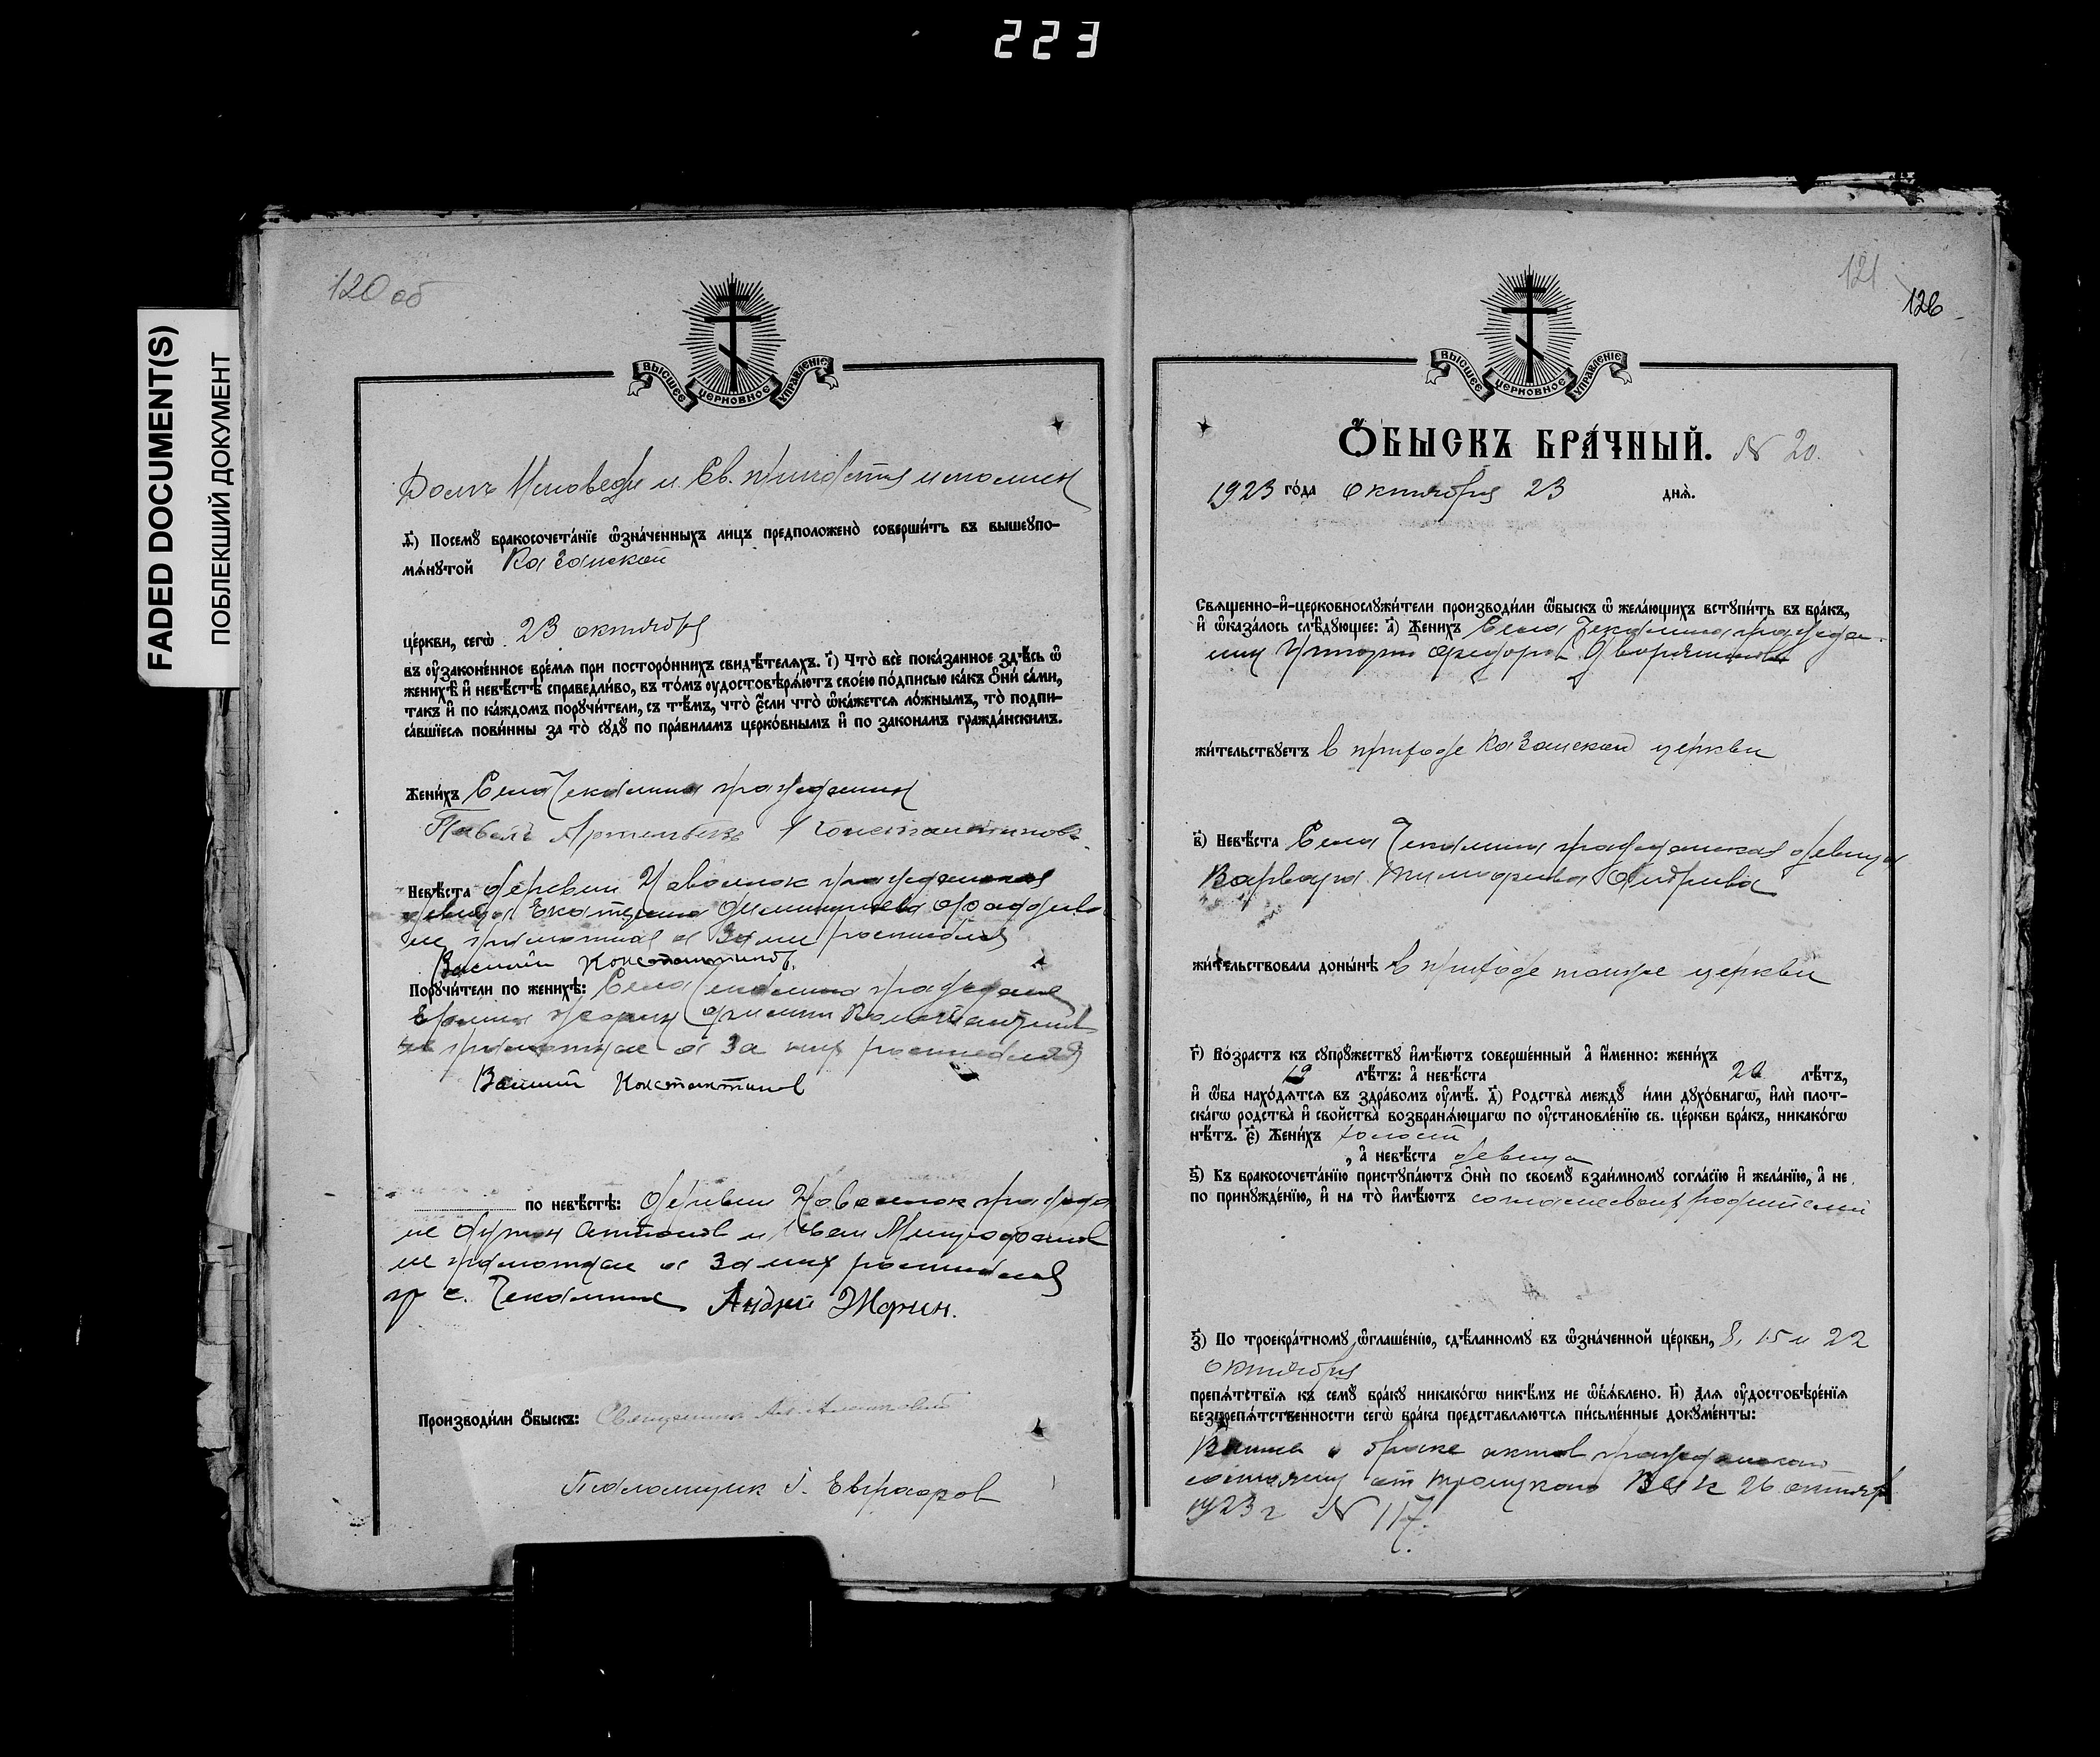 223
FADED DOCUMENT(S)
ПОБЛЕКШИЙ ДОКУМЕНТ
120 об
ВЫСШЕЕ ЦЕРКОВНОЕ УПРАВЛЕНІЕ
Долгъ Исповеди и Св. причастия исполнен
д҃) Посемꙋ бракосочета́нїе ѡзна́ченныхъ лицъ предположено̀ соверши́ть въ вышеупо-
мѧ́нꙋтой Казанской
це́ркви, сегѡ̀ 23 октября
въ оу҆зако́ненное вре́мя при посторо́ннихъ свидѣ́телѧхъ. і҃) Что̀ всѐ пока́занное здѣ́сь ѡ҆
женихѣ̀ и҆ невѣ́стѣ справедли́во, въ то́мъ оу҆достовѣрѧ́ютъ свое́ю по́дписью ка́къ ѻ҆нѝ са́ми,
та́къ и҆ по ка́ждомъ порꙋчи́тели, съ тѣ́мъ, что̀ є҆́сли что̀ ѡ҆ка́жется ло́жнымъ, то̀ подпи-
са́вшїеся пови́нны за то̀ сꙋдꙋ̀ по пра́виламъ церко́внымъ и҆ по зако́намъ гражда́нскимъ.
Жени́хъ Села Чекалина гражданин
Павелъ Артемьевъ Константиновъ
Невѣ́ста деревни Наволок гражданская
девица Екатерина
не грамотная а за
росписался
Василий Константинов
Порꙋчи́тели по женихѣ̀: Села Чекалина граждане
Филипп Константинов
не грамотные а за них росписался
Василий Константинов
по невѣ́стѣ: деревни Наволок гражда
не
Антонов и Иван Митрофанов
не грамотные а за них росписался
гр с. Чекалина Андрей Жарин.
Производи́ли ѻ҆́быскъ: Священник
Псаломщик
Евграфов
121
126
ВЫСШЕЕ ЦЕРКОВНОЕ УПРАВЛЕНІЕ
Ѻ҆́БЫСКЪ БРА́ЧНЫЙ. N 20.
1923 го́да Октября 23 днѧ̀.
Свѧще́нно-и҆-церковнослꙋжи́тели производи́ли ѻ҆́быскъ ѡ҆ жела́ющихъ встꙋпи́ть въ бра́къ,
и҆ ѡ҆каза́лось слѣ́дꙋющее: а҃) Жени́хъ Села Чекалина граждан-
ин
Федоров Дворянинов
жи́тельствꙋетъ в приходе Казанской церкви
в҃) Невѣ́ста Села Чекалина гражданская девица
Варвара Тимофеева
жи́тельствовала доны́нѣ в приходе той же церкви
г҃) Во́зрастъ къ сꙋпрꙋ́жествꙋ и҆мѣ́ютъ соверше́нный а҆ и҆́менно: жени́хъ
19 лѣ́тъ: а҆ невѣ́ста 20 лѣ́тъ,
и҆ ѻ҆́ба нахо́дѧтсѧ въ здра́вомъ оу҆мѣ̀. д҃) Родства̀ междꙋ̀ и҆́ми дꙋхо́внагѡ, и҆лѝ плот-
ска́гѡ родства̀ и҆ свойства̀ возбранѧ́ющагѡ по оу҆становле́нїю св. це́ркви бра́къ, никако́гѡ
нѣ́тъ. є҃) Жени́хъ холост
, а҆ невѣ́ста девица
ѕ҃) Къ бракосочета́нїю пристꙋпа́ютъ ѻ҆нѝ по своемꙋ̀ взаи́мномꙋ согла́сїю и҆ жела́нїю, а҆ не
по принꙋжде́нїю, и҆ на то̀ и҆мѣ́ютъ согласие своих родителей
з҃) По троекра́тномꙋ ѡ҆глаше́нїю, сдѣ́ланномꙋ въ ѡ҆зна́ченной це́ркви, 8, 15 и 22
октября
препѧ́тствїя къ семꙋ̀ бра́кꙋ никако́гѡ никѣ́мъ не ѡ҆бъѧ́влено. и҃) Для оу҆достовѣре́нїя
безпрепѧ́тственности сегѡ̀ бра́ка представлѧ́ются пи́сьменные докꙋме́нты:
о браке актов гражданского
состояния от Троицкого ВИК 26 октября
1923 г N 117.